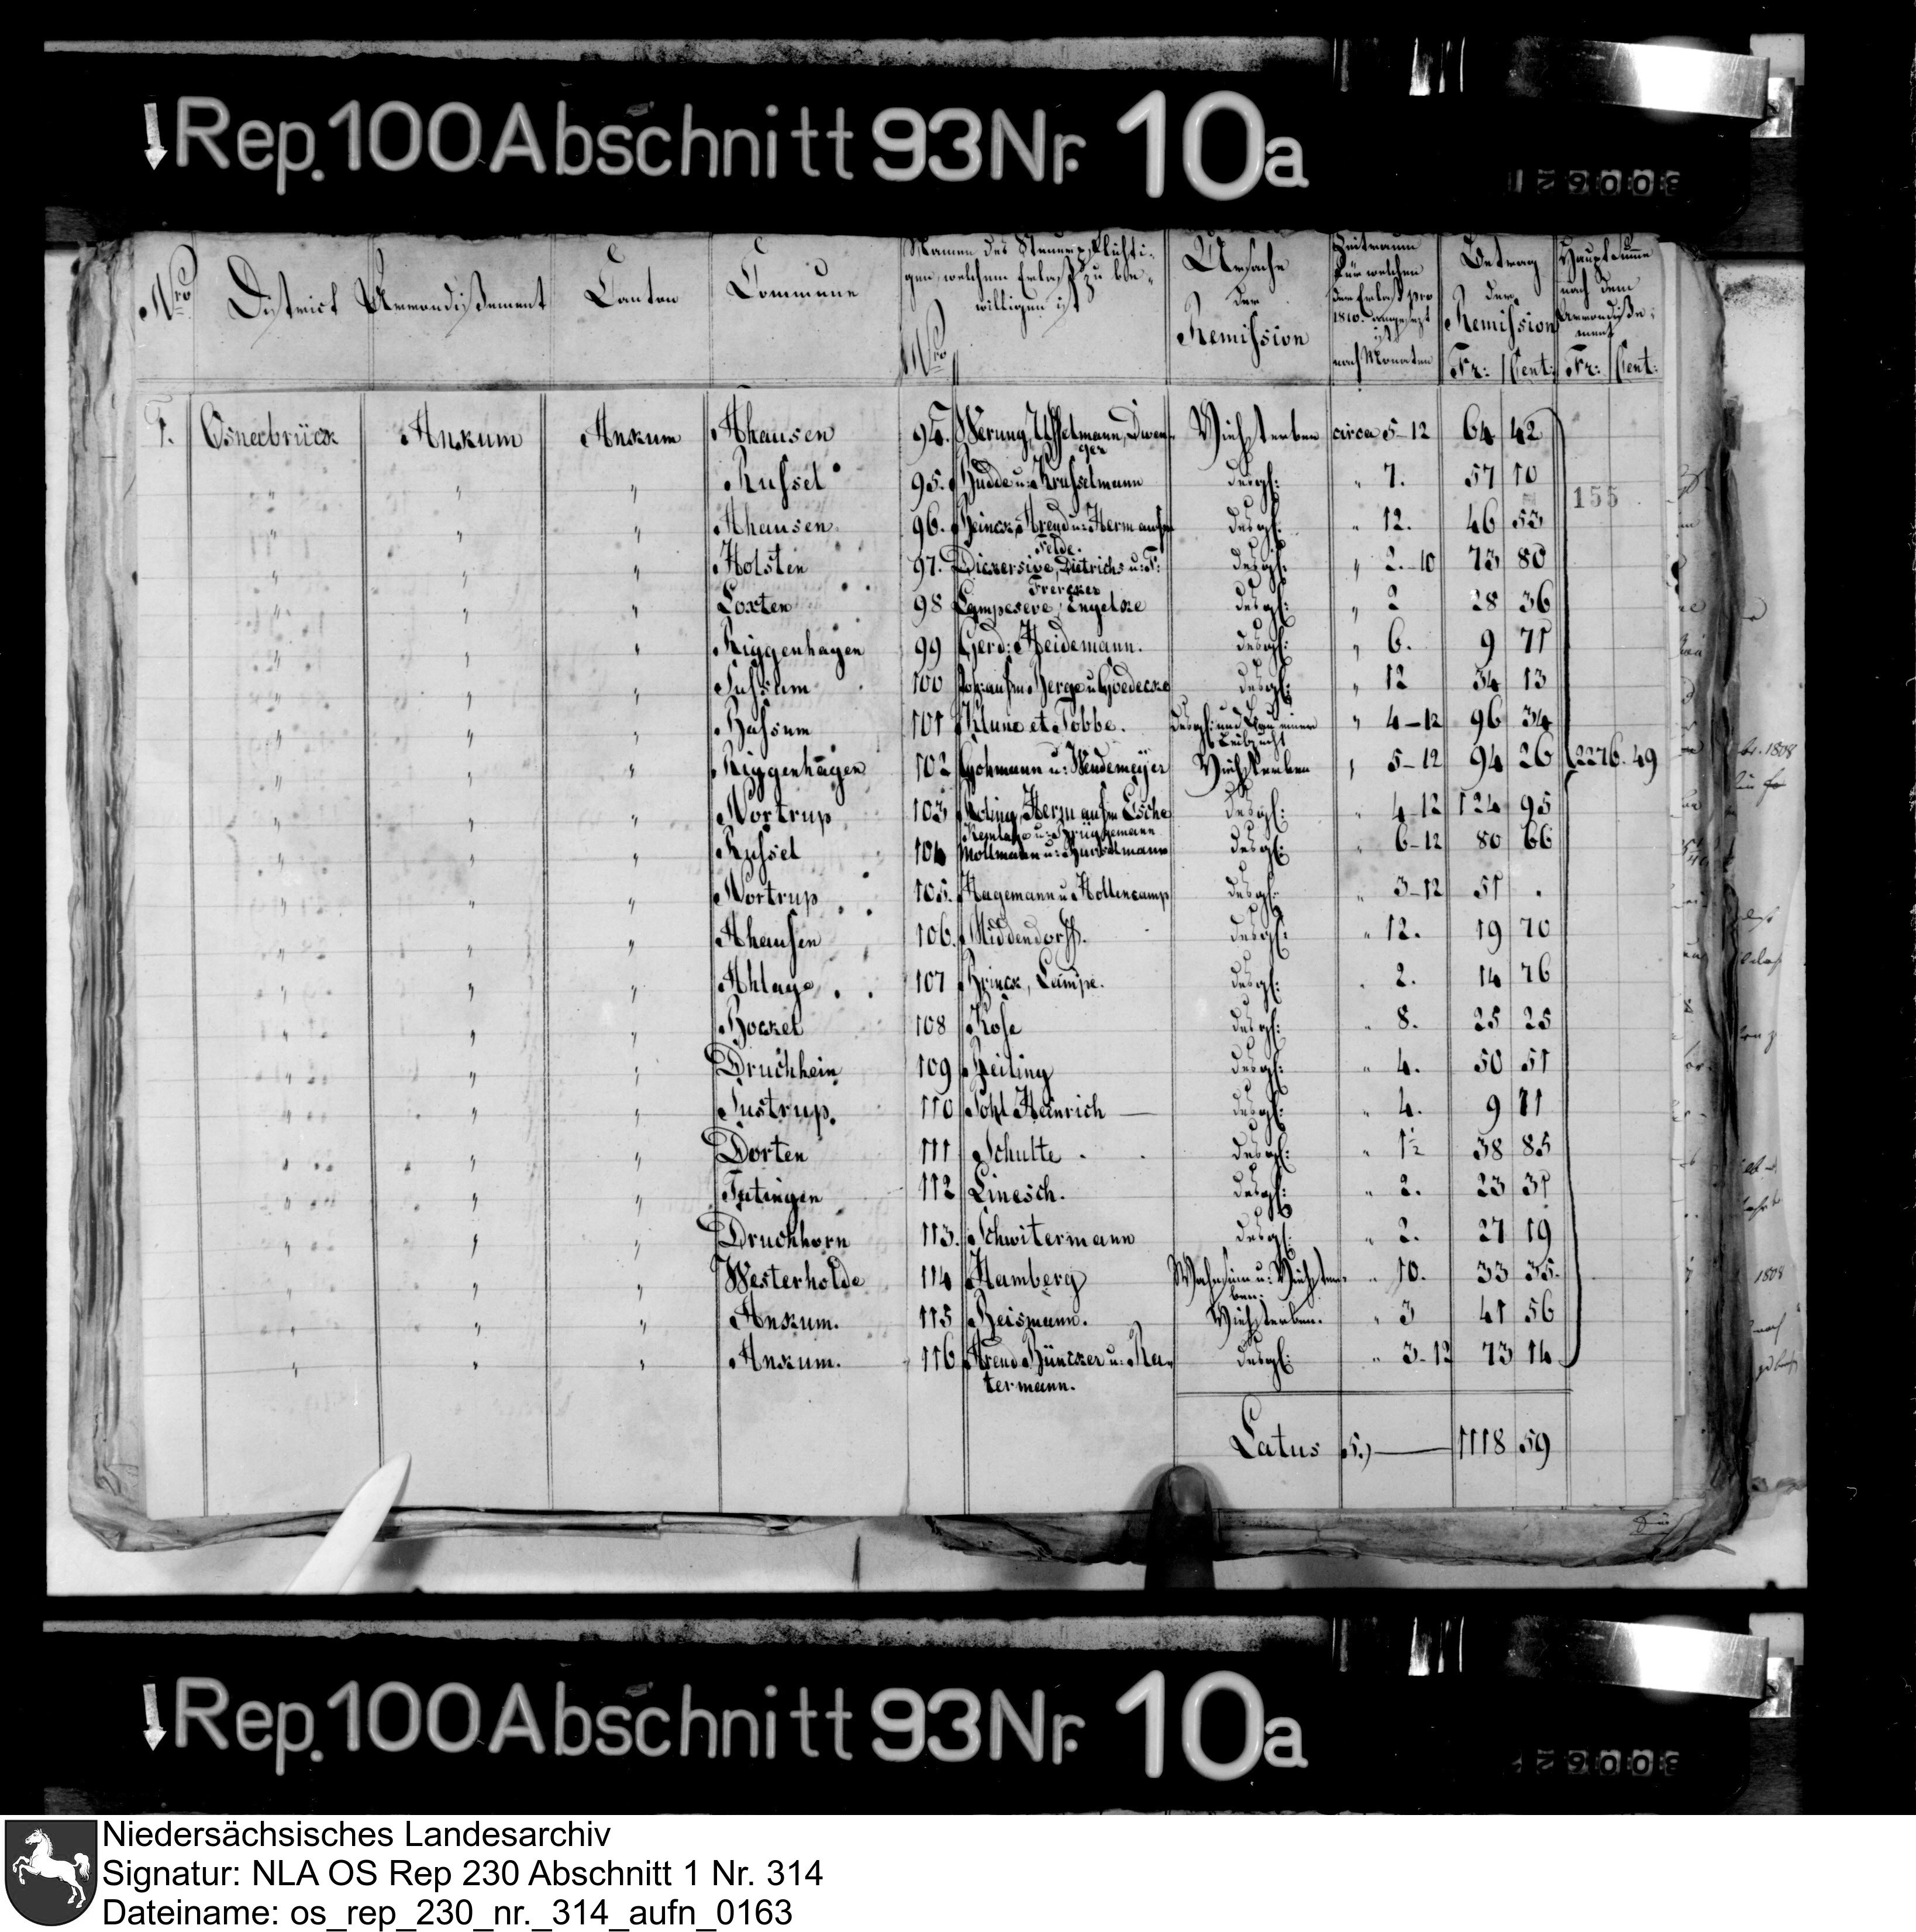 Rep. 100 Abschnitt 93 Nr. 10a
Nro District Arrondißement Canton Commune Nro Namen des Steuerpflichtigen, welchem Erlaß zu bewilligen ist Ursache der Remission Zeitraum für welchen der Erlaß pro 1810. angesezt ist nach Monaten Betrag der Remission Fr: Cent: Haupt Summe nach dem Arrondißement Fr: Cent:
Osnabrück Ankum Ankum Ahausen 94. Werung, Dwenger Viehsterben circa 5-12 64 42
" " " Russel 95. Budde u: Krusselmann desgl: " 7. 57 10
155
" " " Ahausen 96. Arend u: Herm aufm Felde. desgl: " 12. 46 53
" " " Holsten 97. Dietrichs u: F: Frercker desgl: " 2-10 73 80
" " " Loxten 98 Engelke desgl: " 2 28 36
" " " Kiggenhagen 99 Gerd: Heidemann. desgl: " 6. 9 71
" " " Sussum 100 aufm Berge u Goedecke desgl: " 12 34 13
" " " Bassum 101 Klune et Tobbe. desgl: und Bau einer Leibzucht " 4-12 96 34
" " " Kiggenhagen 102 Gohmann u: Wendemeyer Viehsterben " 5-12 94 26 2276. 49
" " " Nortrup 103 Herm aufm Esche Kemlage u: Brüggemann desgl: " 4-12 124 95
" " " Russel 104 Mollmann u: desgl: " 6-12 80 66
" " " Nortrup 105. Hagemann u Hollencamp desgl: " 3-12 51 .
" " " Ahausen 106. Middendorff. desgl: " 12. 19 70
" " " Ahlage 107 Brinck, Lampe. desgl: " 2. 14 76
" " " Bockel 108 Kose desgl: " 8. 25 25
" " " Druchhein 109 Beiling desgl: " 4. 50 51
" " " Sustrup. 110 Pohl Heinrich — desgl: " 4. 9 71
" " " Dorten 111 Schulte desgl: " 1½ 38 85
" " " Tütingen 112 Linesch. desgl: " 2. 23 31
" " " Druchhorn 113. Schwitermann desgl: " 2. 27 19
" " " Westerholde 114 Hamberg Wahnsinn u: Viehsterben: " 10. 33 35.
" " " Ankum. 115 Beismann. Viehsterben. " 3 41 56
" " " Ankum. 116 Arend Büncker u: Ratermann. desgl: " 3-12 73 14
Latus 5.) — 1118 59
Rep. 100 Abschnitt 93 Nr. 10a
Niedersächsisches Landesarchiv
Signatur: NLA OS Rep 230 Abschnitt 1 Nr. 314
Dateiname: os_rep_230_nr._314_aufn_0163